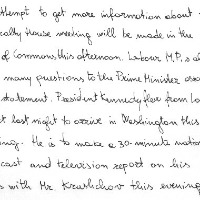 attempt to get more information about
House meeting will be made in the
of Commons this afternoon. Labour M.P.s
many questions to the Prime Minister
statement. President Kennedy flew from
last night to arrive in Washington this
He is to make a 30-minute
cast and television report on his
with Mr. Krushchov this evening